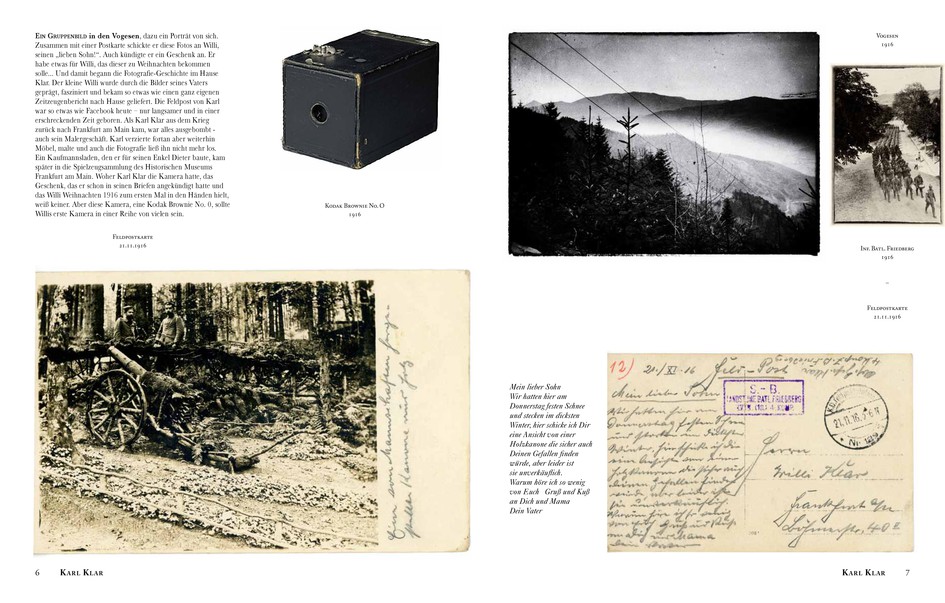 Ein Gruppenbild in den Vogesen, dazu ein Porträt von sich.
Zusammen mit einer Postkarte schickte er diese Fotos an Willi,
seinen „lieben Sohn!“. Auch kündigte er ein Geschenk an. Er
habe etwas für Willi, das dieser zu Weihnachten bekommen
solle... Und damit begann die Fotografie-Geschichte im Hause
Klar. Der kleine Willi wurde durch die Bilder seines Vaters
geprägt, fasziniert und bekam so etwas wie einen ganz eigenen
Zeitzeugenbericht nach Hause geliefert. Die Feldpost von Karl
war so etwas wie Facebook heute – nur langsamer und in einer
erschreckenden Zeit geboren. Als Karl Klar aus dem Krieg
zurück nach Frankfurt am Main kam, war alles ausgebombt -
auch sein Malergeschäft. Karl verzierte fortan aber weiterhin
Möbel, malte und auch die Fotografie ließ ihn nicht mehr los.
Ein Kaufmannsladen, den er für seinen Enkel Dieter baute, kam
später in die Spielzeugsammlung des Historischen Museums
Frankfurt am Main. Woher Karl Klar die Kamera hatte, das
Geschenk, das er schon in seinen Briefen angekündigt hatte und
das Willi Weihnachten 1916 zum ersten Mal in den Händen hielt,
weiß keiner. Aber diese Kamera, eine Kodak Brownie No. 0, sollte
Willis erste Kamera in einer Reihe von vielen sein.
Feldpostkarte
21.11.1916
Kodak Brownie No. O
1916
Vogesen
1916
Inf. Batl. Friedberg
1916
–
Feldpostkarte
21.11.1916
Mein lieber Sohn
Wir hatten hier am
Donnerstag festen Schnee
und stecken im dicksten
Winter, hier schicke ich Dir
eine Ansicht von einer
Holzkanone die sicher auch
Deinen Gefallen finden
würde, aber leider ist
sie unverkäuflich.
Warum höre ich so wenig
von Euch Gruß und Kuß
an Dich und Mama
Dein Vater
12)
21/XI.16 Feld-Post
S-B.
LANDST. INF. BATL. FRIEDBERG
21.11.16.
Mein lieber Sohn
Herrn
Willi Klar
Frankfurt a/m
6 Karl Klar
Karl Klar 7